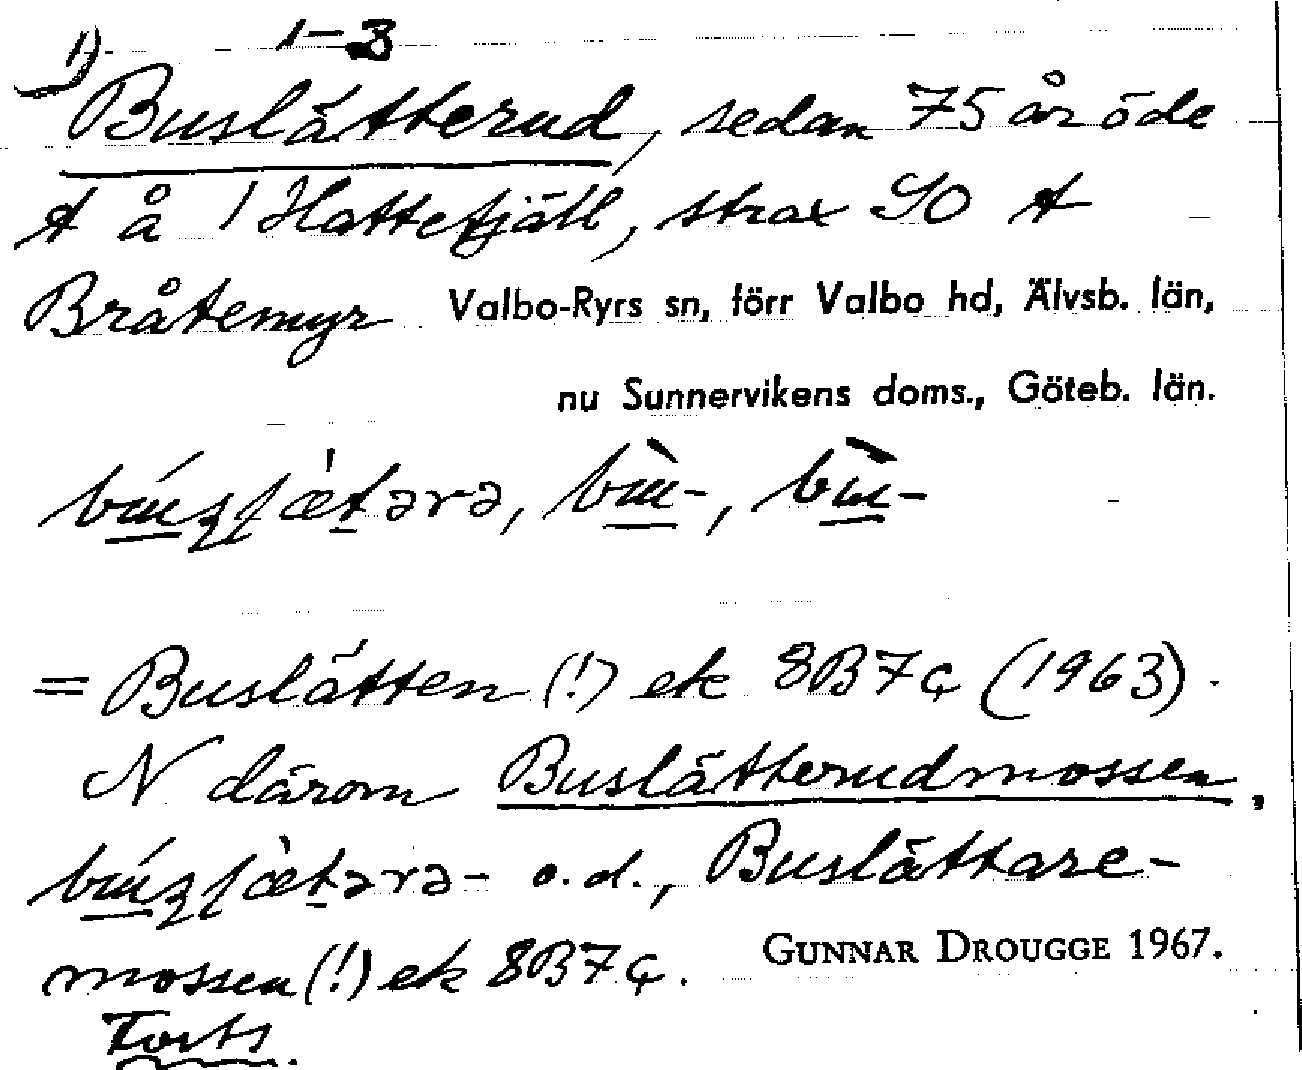 1) 1-3
Buslätterud, sedan 75 år öde
t å 1 Hattefjäll, strax SO t
Bråtemyr Valbo-Ryrs sn, förr Valbo hd, Älvsb. län,
nu Sunnervikens doms., Göteb. län.
= Buslätten (!) ek 8B7c (1963).
N därom Buslätterudmossen,
o.d., Buslättare-
mossen (!) ek 8B7c. GUNNAR DROUGGE 1967.
Forts.